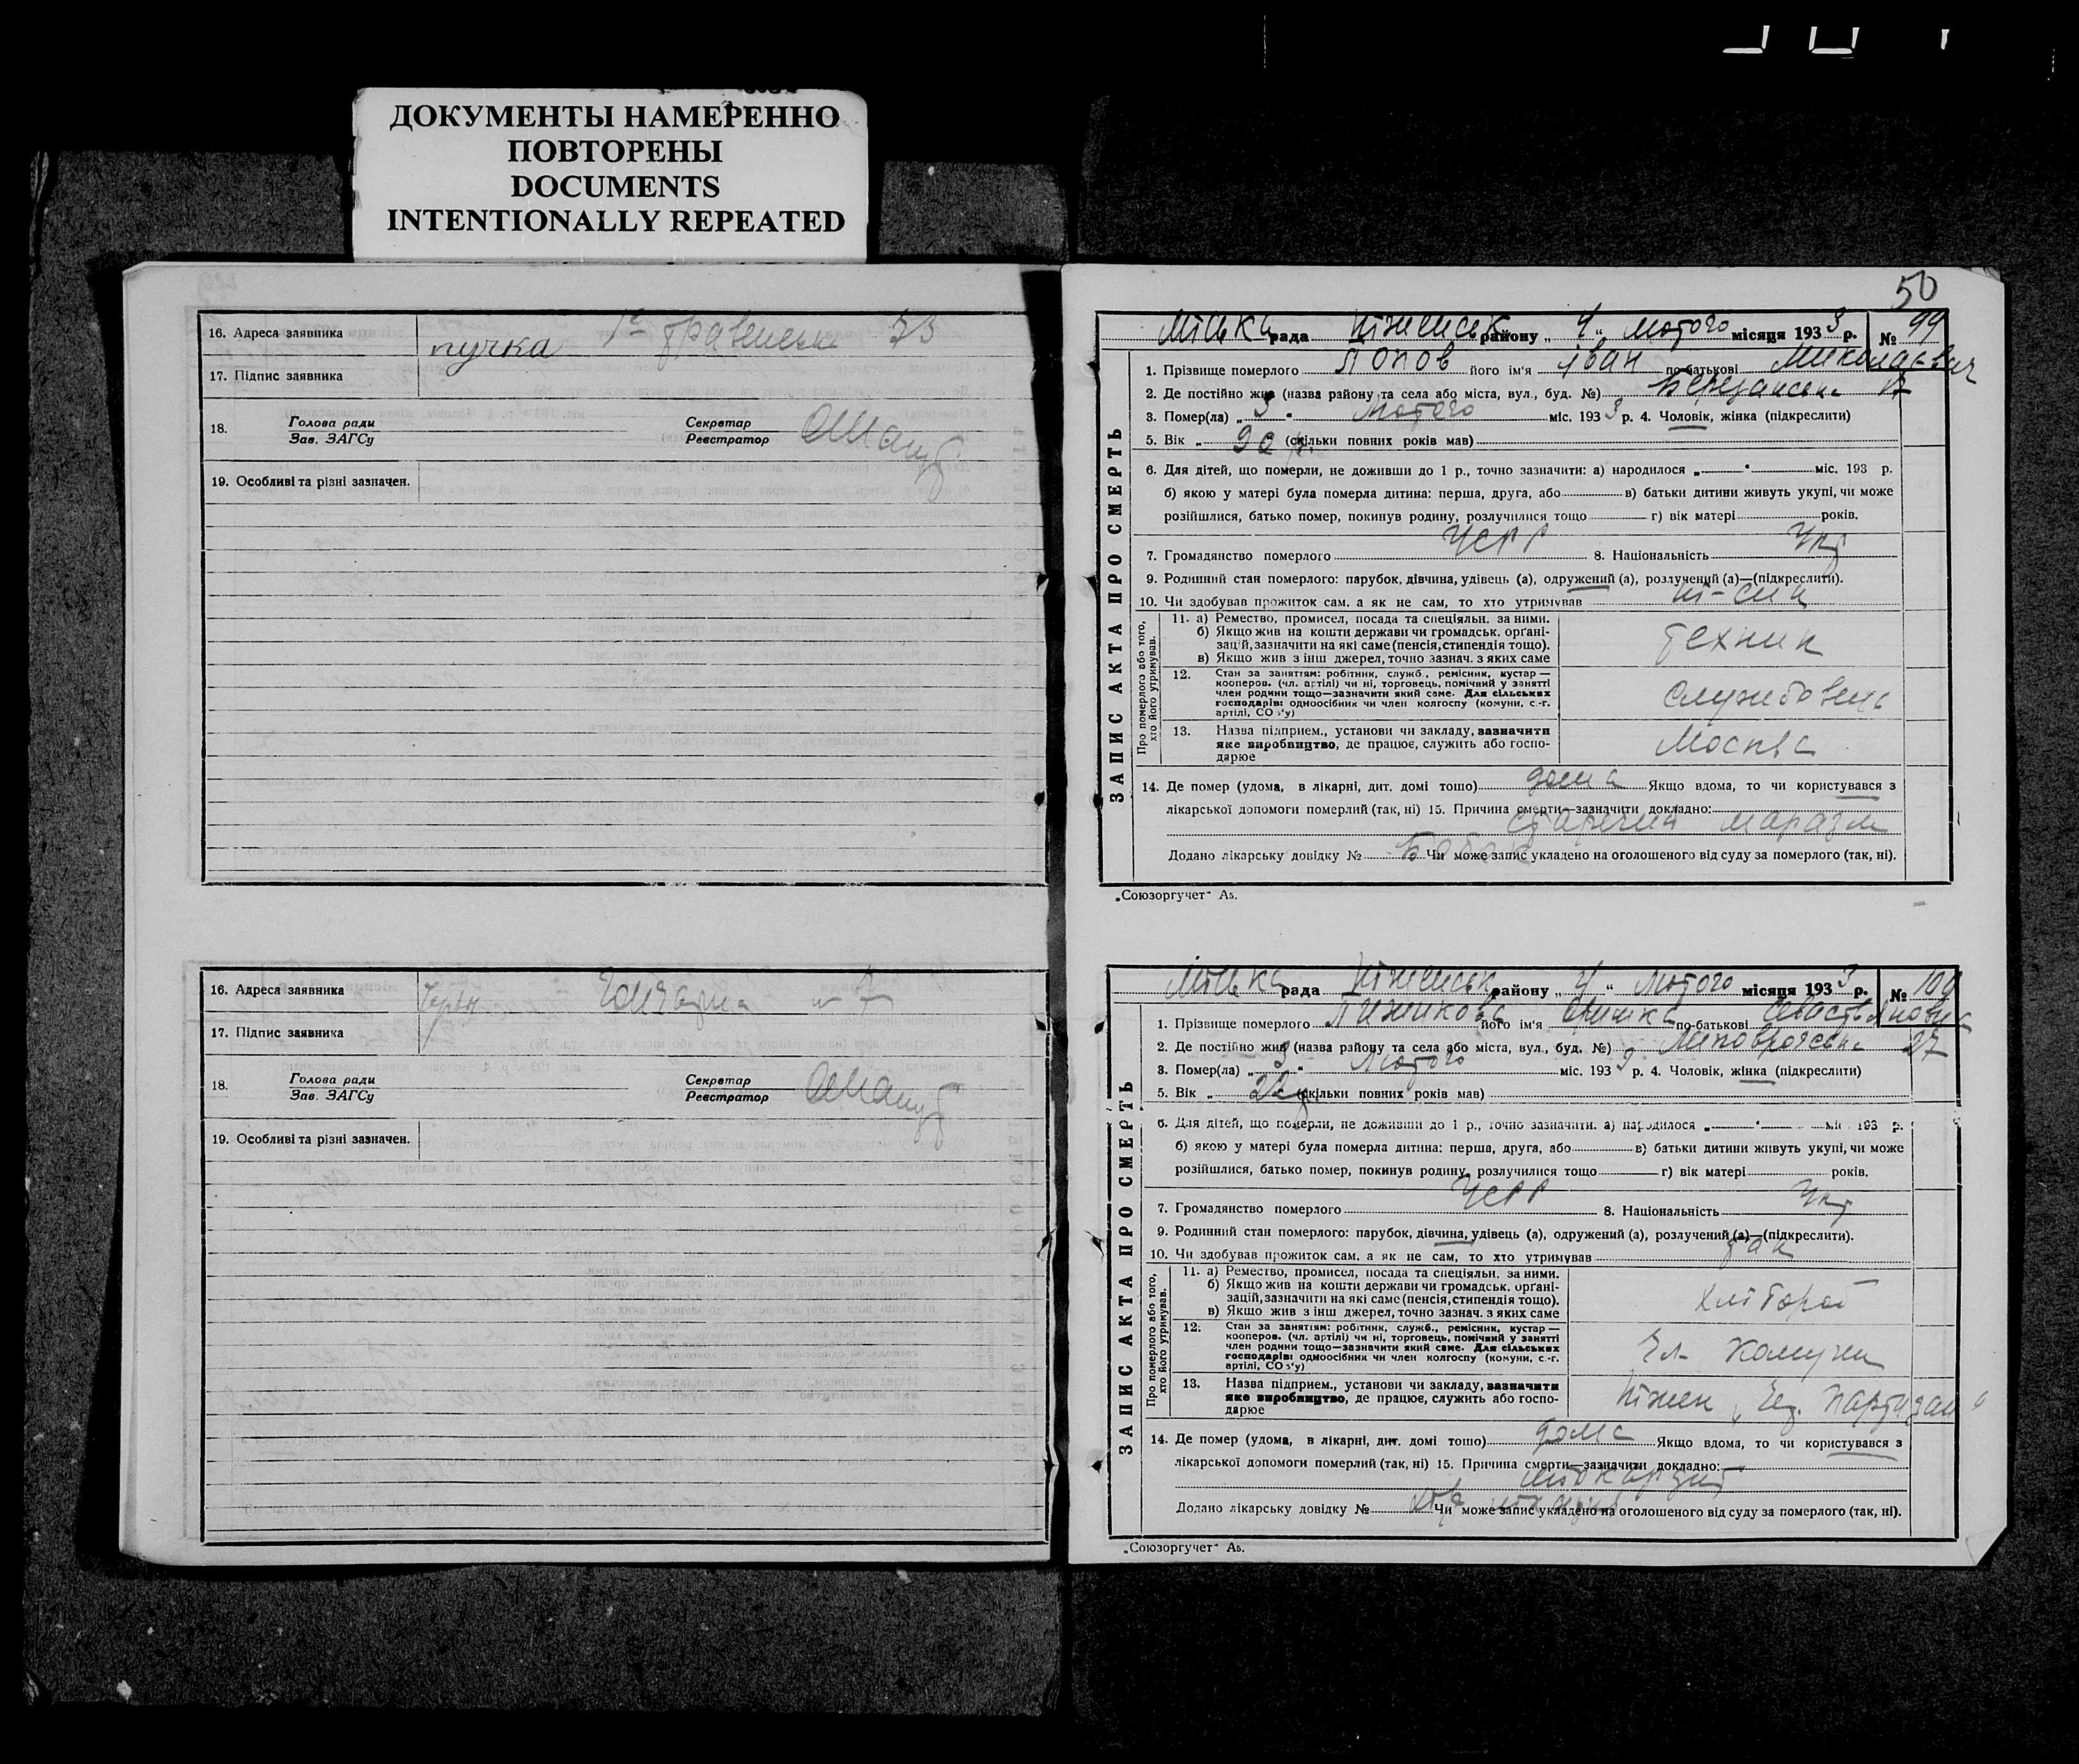 ДОКУМЕНТЫ НАМЕРЕННО
ПОВТОРЕНЫ
DOCUMENTS
INTENTIONALLY REPEATED
16. Адреса заявника
пучка
17. Підпис заявника
18. Голова ради
Зав. ЗАГСу
Секретар
Реєстратор
19. Особливі та різні зазначен.
16. Адреса заявника
17. Підпис заявника
18. Голова ради
Зав. ЗАГСу
Секретар
Реєстратор
19. Особливі та різні зазначен.
50
ЗАПИС АКТА ПРО СМЕРТЬ
Міська рада Ніженськ району „ 4 “ лютого місяця 1933 р. № 99
1. Прізвище померлого Попов його ім'я Іван по батькові Миколаєвич
2. Де постійно жив (назва району та села або міста, вул., буд. №)
3. Помер(ла) „ 3 “ Лютого міс. 1933 р. 4. Чоловік, жінка (підкреслити)
5. Вік „ 90 р. (скільки повних років мав)
6. Для дітей, що померли, не доживши до 1 р., точно зазначити: а) народилося „ “ міс. 193 р.
б) якою у матері була померла дитина: перша, друга, або в) батьки дитини живуть укупі, чи може
розійшлися, батько помер, покинув родину, розлучилися тощо г) вік матері років.
7. Громадянство померлого УСРР 8. Національність Укр
9. Родинний стан померлого: парубок, дівчина, удівець (а), одружений (а), розлучений (а)—(підкреслити).
10. Чи здобував прожиток сам, а як не сам, то хто утримував ні-син
Про померлого або того, хто його утримував.
11. а) Ремество, промисел, посада та спеціяльн. за ними.
б) Якщо жив на кошти держави чи громадськ. орґані-
зацій, зазначити на які саме (пенсія, стипендія тощо).
в) Якщо жив з інш джерел, точно зазнач. з яких саме
технік
12. Стан за заняттям: робітник, служб., ремісник, кустар—
кооперов. (чл. артілі) чи ні, торговець, помічний у занятті
член родини тощо—зазначити який саме. Для сільських
господарів: одноосібник чи член колгоспу (комуни, с.-г.
артілі, СОЗ'у)
службовець
13. Назва підприєм., установи чи закладу, зазначити
яке виробництво, де працює, служить або госпо-
дарює
Москва
14. Де помер (удома, в лікарні, дит. домі тощо) дома Якщо вдома, то чи користувався з
лікарської допомоги померлий (так, ні) 15. Причина смерти—зазначити докладно:
старечий маразм
Додано лікарську довідку № Чи може запис укладено на оголошеного від суду за померлого (так, ні).
„Союзоргучет“ А5.
ЗАПИС АКТА ПРО СМЕРТЬ
Міська рада Ніженськ району „ 4 “ лютого місяця 1933 р. № 100
1. Прізвище померлого його ім'я по батькові
2. Де постійно жив (назва району та села або міста, вул., буд. №) 27
3. Помер(ла) „ 3 “ Лютого міс. 1933 р. 4. Чоловік, жінка (підкреслити)
5. Вік „ (скільки повних років мав)
6. Для дітей, що померли, не доживши до 1 р., точно зазначити: а) народилося „ “ міс. 193 р.
б) якою у матері була померла дитина: перша, друга, або в) батьки дитини живуть укупі, чи може
розійшлися, батько помер, покинув родину, розлучилися тощо г) вік матері років.
7. Громадянство померлого УСРР 8. Національність Укр
9. Родинний стан померлого: парубок, дівчина, удівець (а), одружений (а), розлучений (а)—(підкреслити).
10. Чи здобував прожиток сам, а як не сам, то хто утримував так
Про померлого або того, хто його утримував.
11. а) Ремество, промисел, посада та спеціяльн. за ними.
б) Якщо жив на кошти держави чи громадськ. орґані-
зацій, зазначити на які саме (пенсія, стипендія тощо).
в) Якщо жив з інш джерел, точно зазнач. з яких саме
хлібороб
12. Стан за заняттям: робітник, служб., ремісник, кустар—
кооперов. (чл. артілі) чи ні, торговець, помічний у занятті
член родини тощо—зазначити який саме. Для сільських
господарів: одноосібник чи член колгоспу (комуни, с.-г.
артілі, СОЗ'у)
Чл. Комуни
13. Назва підприєм., установи чи закладу, зазначити
яке виробництво, де працює, служить або госпо-
дарює
Ніжен „Чер. Партизан“
14. Де помер (удома, в лікарні, дит. домі тощо) дома Якщо вдома, то чи користувався з
лікарської допомоги померлий (так, ні) 15. Причина смерти—зазначити докладно:
міокардит
Додано лікарську довідку № Чи може запис укладено на оголошеного від суду за померлого (так, ні).
„Союзоргучет“ А5.